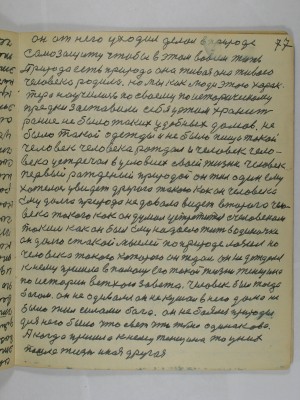 он от него уходил делал в природе 77
самозащиту чтобы в этом всем жить
Природа есть природа она живая она живого
человека родила, но мы как люди этого харак-
тера научились по своему по историческому
предки заставили себя этим хранит-
ранее не было таких удобных домов, не
было такой одежды и не было пищи такой
человек человека рождал и человек чело-
века встречал в условиях своей жизни человек
первый рожденный природой он был один ему
хотелось увидеть другого такого как он человека
ему долго природа не давала видеть второго чело-
века такого как он думал встретится с человеком
таким как он был ему надоело жить в одиночке
он долго с такой мыслей по природе лазил но
человека такого которого он ждал он не дождал
к нему пришло в помощь его такой жизни женщина
по истории ветхого завета, человек был тогда
богом, он не одевался он не кушал в него дома не
было жил силами бога, он не боялся природы
для него было что свет это тьма одинаково.
А когда пришла к нему женщина то у них
пошла жизнь иная другая